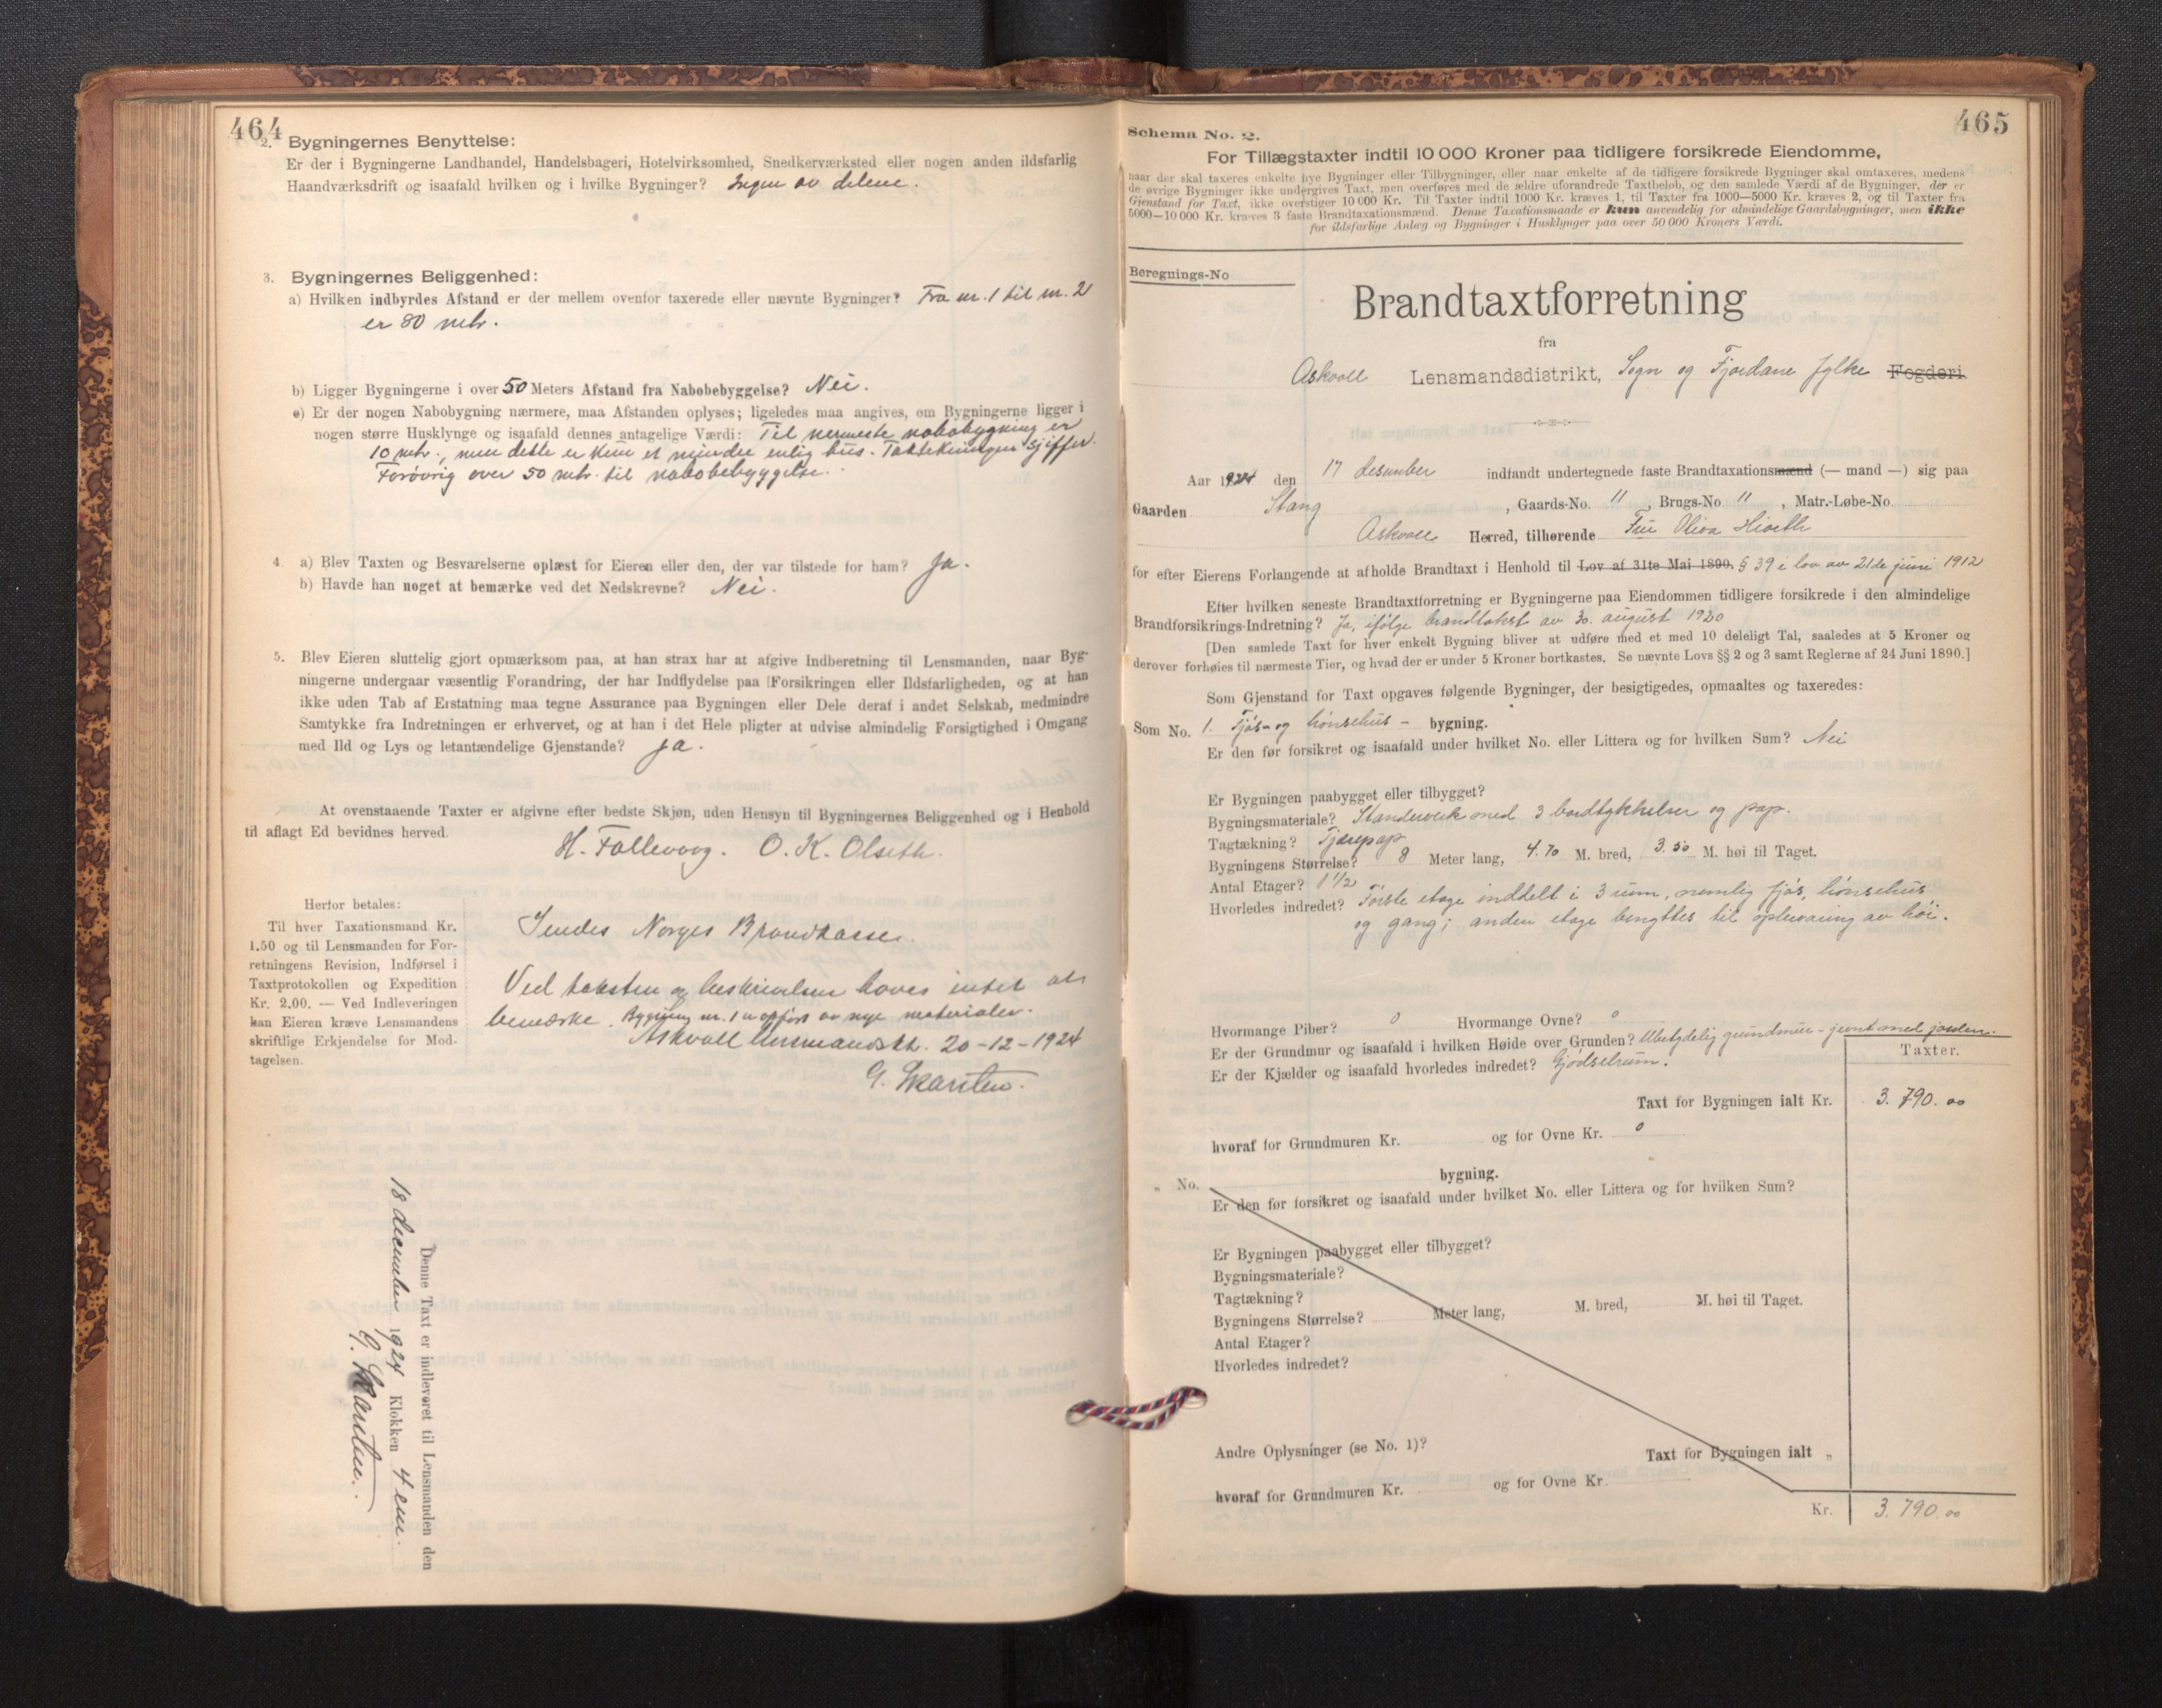 464
2. Bygningernes Benyttelse:
Er der i Bygningerne Landhandel, Handelsbageri, Hotelvirksomhed, Snedkerværksted eller nogen anden ildsfarlig
Haandværksdrift og isaafald hvilken og i hvilke Bygninger? Ingen av delene.
3. Bygningernes Beliggenhed:
a) Hvilken indbyrdes Afstand er der mellem ovenfor taxerede eller nævnte Bygninger? Fra nr. 1 til nr. 2
er 80 mtr.
b) Ligger Bygningerne i over 50 Meters Afstand fra Nabobebyggelse? Nei.
c) Er der nogen Nabobygning nærmere, maa Afstanden oplyses; ligeledes maa angives, om Bygningerne ligger i
nogen større Husklynge og isaafald dennes antagelige Værdi: Til nermeste nabobygning er
10 mtr., men dette er kun et mindre enlig hus. Taktekningen sjiffer.
Forøvrig over 50 mtr. til nabobebyggelse.
4. a) Blev Taxten og Besvarelserne oplæst for Eieren eller den, der var tilstede for ham? Ja.
b) Havde han noget at bemærke ved det Nedskrevne? Nei.
5. Blev Eieren sluttelig gjort opmærksom paa, at han strax har at afgive Indberetning til Lensmanden, naar Byg-
ningerne undergaar væsentlig Forandring, der har Indflydelse paa Forsikringen eller Ildsfarligheden, og at han
ikke uden Tab af Erstatning maa tegne Assurance paa Bygningen eller Dele deraf i andet Selskab, medmindre
Samtykke fra Indretningen er erhvervet, og at han i det Hele pligter at udvise almindelig Forsigtighed i Omgang
med Ild og Lys og letantændelige Gjenstande? Ja.
At ovenstaaende Taxter er afgivne efter bedste Skjøn, uden Hensyn til Bygningernes Beliggenhed og i Henhold
til aflagt Ed bevidnes herved.
H. Follevaag. O. K. Olseth.
Herfor betales:
Til hver Taxationsmand Kr.
1.50 og til Lensmanden for For-
retningens Revision, Indførsel i
Taxtprotokollen og Expedition
Kr. 2.00. — Ved Indleveringen
kan Eieren kræve Lensmandens
skriftlige Erkjendelse for Mod-
tagelsen.
Sendes Norges Brandkasse.
Ved taksten og beskrivelsen haves intet at
bemærke. Bygning nr. 1 er opført av nye materialer.
Askvoll lensmandsk. 20-12-1924
G. Skarsten.
Denne Taxt er indleveret til Lensmanden den
18 december 1924 Klokken 4 em.
G. Skarsten.
465
Schema No. 2.
For Tillægstaxter indtil 10 000 Kroner paa tidligere forsikrede Eiendomme,
naar der skal taxeres enkelte nye Bygninger eller Tilbygninger, eller naar enkelte af de tidligere forsikrede Bygninger skal omtaxeres, medens
de øvrige Bygninger ikke undergives Taxt, men overføres med de ældre uforandrede Taxtbeløb, og den samlede Værdi af de Bygninger, der er
Gjenstand for Taxt, ikke overstiger 10 000 Kr. Til Taxter indtil 1000 Kr. kræves 1, til Taxter fra 1000—5000 Kr. kræves 2, og til Taxter fra
5000—10 000 Kr. kræves 3 faste Brandtaxationsmænd. Denne Taxationsmaade er kun anvendelig for almindelige Gaardsbygninger, men ikke
for ildsfarlige Anlæg og Bygninger i Husklynger paa over 50 000 Kroners Værdi.
Beregnings-No
Brandtaxtforretning
fra
Askvoll Lensmandsdistrikt, Sogn og Fjordane fylke Fogderi
Aar 1924 den 17 desember indfandt undertegnede faste Brandtaxationsmænd (— mand —) sig paa
Gaarden Stang, Gaards-No. " , Brugs-No " , Matr.-Løbe-No.
Askvoll Herred, tilhørende Fru Oliva Hioeth
for efter Eierens Forlangende at afholde Brandtaxt i Henhold til Lov af 31te Mai 1890. § 39 i lov av 21de juni 1912
Efter hvilken seneste Brandtaxtforretning er Bygningerne paa Eiendommen tidligere forsikrede i den almindelige
Brandforsikrings-Indretning? Ja, ifølge brandtakst av 30. august 1920
[Den samlede Taxt for hver enkelt Bygning bliver at udføre med et med 10 deleligt Tal, saaledes at 5 Kroner og
derover forhøies til nærmeste Tier, og hvad der er under 5 Kroner bortkastes. Se nævnte Lovs §§ 2 og 3 samt Reglerne af 24 Juni 1890.]
Som Gjenstand for Taxt opgaves følgende Bygninger, der besigtigedes, opmaaltes og taxeredes:
Som No. 1. Fjös- og hönsehus - bygning.
Er den før forsikret og isaafald under hvilket No. eller Littera og for hvilken Sum? Nei
Er Bygningen paabygget eller tilbygget?
Bygningsmateriale? Standerverk med 3 bordtykkelser og pap.
Tagtækning? Tjærepap
Bygningens Størrelse? 8 Meter lang, 4.70 M. bred, 3.50 M. høi til Taget.
Antal Etager? 1 1/2
Hvorledes indredet? Förste etage inddelt i 3 rum, nemlig fjös, hönsehus
og gang; anden etage benyttes til opbevaring av höi.
Hvormange Piber? 0 Hvormange Ovne? 0
Er der Grundmur og isaafald i hvilken Høide over Grunden? Ubetydelig grundmur - jevnt med jorden.
Er der Kjælder og isaafald hvorledes indredet? Gjödselrum.
Taxter.
Taxt for Bygningen ialt Kr. 3.790.00
hvoraf for Grundmuren Kr. og for Ovne Kr. 0
„ No. bygning.
Er den før forsikret og isaafald under hvilket No. eller Littera og for hvilken Sum?
Er Bygningen paabygget eller tilbygget?
Bygningsmateriale?
Tagtækning?
Bygningens Størrelse? Meter lang, M. bred, M. høi til Taget.
Antal Etager?
Hvorledes indredet?
Andre Oplysninger (se No. 1)? Taxt for Bygningen ialt „
hvoraf for Grundmuren Kr. og for Ovne Kr.
Kr. 3.790.00